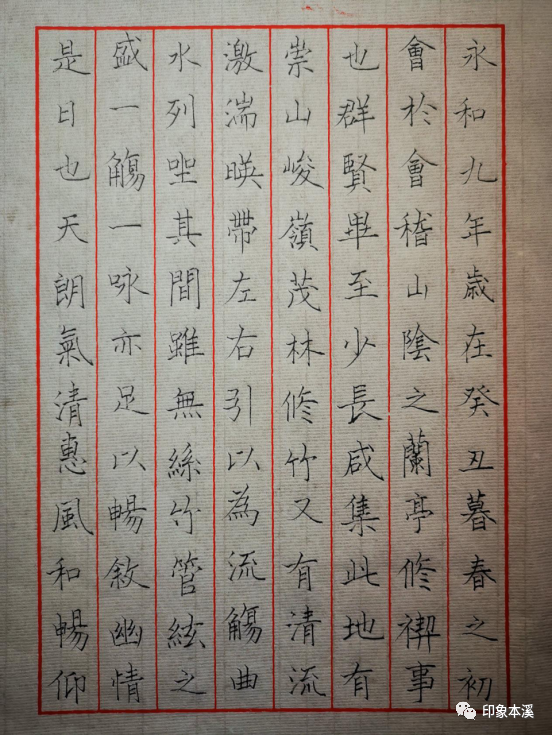 永和九年歲在癸丑暮春之初
會於會稽山陰之蘭亭修禊事
也群賢畢至少長咸集此地有
崇山峻嶺茂林修竹又有清流
激湍暎帶左右引以為流觴曲
水列坐其間雖無絲竹管絃之
盛一觴一咏亦足以暢敘幽情
是日也天朗氣清惠風和暢仰
印象本溪